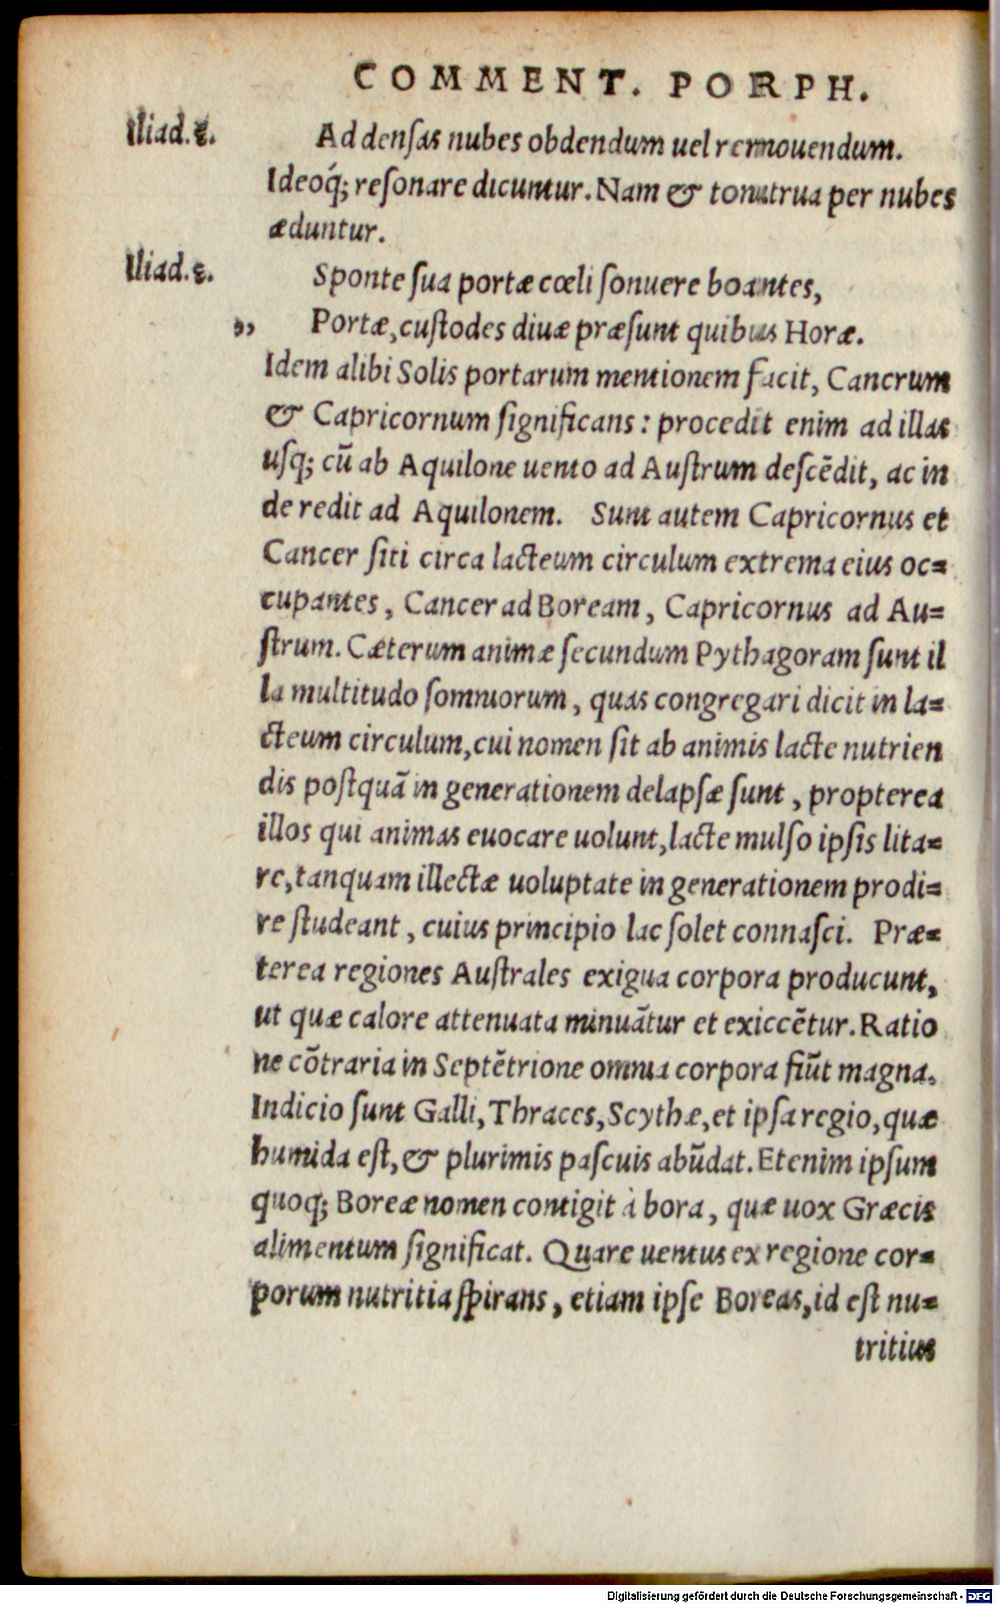 COMMENT. PORPH.
Iliad.ε. Ad densas nubes obdendum uel remouendum.
Ideoq́; resonare dicuntur. Nam & tonitrua per nubes
æduntur.
Iliad.ε. Sponte sua portæ cœli sonuere boantes,
,, Portæ, custodes diuæ præsunt quibus Horæ.
Idem alibi Solis portarum mentionem facit, Cancrum
& Capricornum significans: procedit enim ad illas
usq; cū ab Aquilone uento ad Austrum descēdit, ac in
de redit ad Aquilonem. Sunt autem Capricornus et
Cancer siti circa lacteum circulum extrema eius oc=
cupantes, Cancer ad Boream, Capricornus ad Au=
strum. Cæterum animæ secundum Pythagoram sunt il
la multitudo somniorum, quas congregari dicit in la=
cteum circulum, cui nomen sit ab animis lacte nutrien
dis postquā in generationem delapsæ sunt, propterea
illos qui animas euocare uolunt, lacte mulso ipsis lita=
re, tanquam illectæ uoluptate in generationem prodi=
re studeant, cuius principio lac solet connasci. Præ=
terea regiones Australes exigua corpora producunt,
ut quæ calore attenuata minuātur et exiccētur. Ratio
ne cōtraria in Septētrione omnia corpora fiūt magna.
Indicio sunt Galli, Thraces, Scythæ, et ipsa regio, quæ
humida est, & plurimis pascuis abūdat. Etenim ipsum
quoq; Boreæ nomen contigit à bora, quæ uox Græcis
alimentum significat. Quare uentus ex regione cor=
porum nutritia spirans, etiam ipse Boreas, id est nu=
tritius
Digitalisierung gefördert durch die Deutsche Forschungsgemeinschaft - DFG